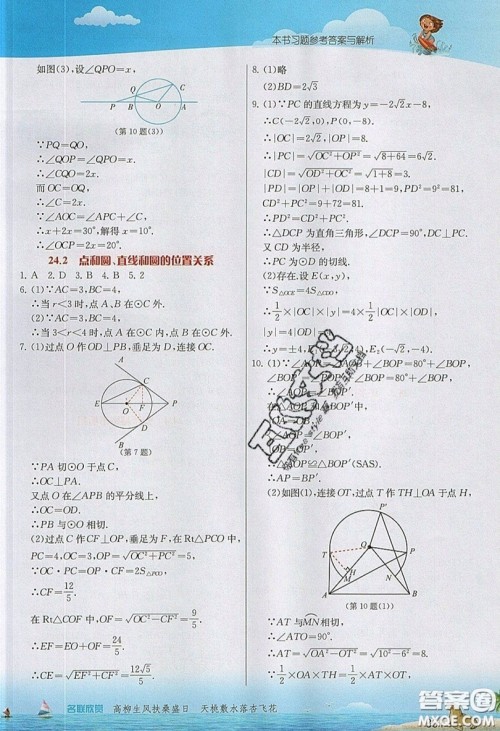 本书习题参考答案与解析
如图(3),设∠QPO=x,
(第10题(3))
∵PQ=QO,
∴∠QOP=∠QPO=x.
∴∠CQO=2x.
而OC=OQ,
∴∠C=2x.
∵∠AOC=∠APC+∠C,
∴x+2x=30°,解得x=10°.
∴∠C=20°.
24.2 点和圆、直线和圆的位置关系
1. A 2. D 3. B 4. B 5. 2
6. (1)∵AC=3,BC=4,
∴当r<3时,点A、B在⊙C外.
(2)∵AC=3,BC=4,
∴当3<r<4时,点A在⊙C内,点B在⊙C外.
7. (1)过点O作OD⊥PB,垂足为D,连接OC.
(第7题)
∵PA切⊙O于点C,
∴OC⊥PA.
又点O在∠APB的平分线上,
∴OC=OD.
∴PB与⊙O相切.
(2)过点C作CF⊥OP,垂足为F,在Rt△PCO中,
PC=4,OC=3,OP=√(OC²+PC²)=5,
∵OC·PC=OP·CF=2S△PCO,
∴CF=12/5.
在Rt△COF中,OF=√(OC²-CF²)=9/5.
∴EF=EO+OF=24/5.
∴CE=√(EF²+CF²)=12√5/5.
8. (1)略
(2)BD=2√3
9. (1)∵PC的直线方程为y=-2√2x-8,
∴C(-2√2,0),P(0,-8).
∴|OC|=2√2,|OP|=8.
∴|PC|=√(OC²+OP²)=√(8+64)=6√2.
|CD|=√(OD²+OC²)=√(1+8)=3.
|PD|=|OP|+|OD|=8+1=9.
∴PD²=CD²+PC².
∴△PDC为直角三角形,
又CD为半径,
∴PC与⊙D相切.
(2)存在.设E(x,y),
∵S△=4S△CDO,
∴1/2×|OC|×|y|=4×1/2×|OC|×|OD|.
|y|=4|OD|=4.
(第10题(1))
∴△AOP≌△BOP′(SAS).
∴AP=BP′.
(2)如图(1),连接OT,过点T作TH⊥OA于点H,
∵AT与MN相切,
∴∠ATO=90°.
∴AT=√(OA²-OT²)=√(10²-6²)=8.
∵1/2×OA×TH=1/2×AT×OT,
名联欣赏 高柳生风扶桑盛日 夭桃敷水落杏飞花
答案圈